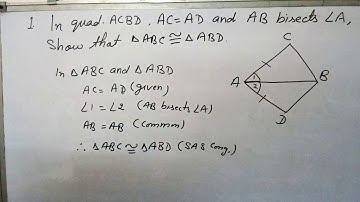 1 In quad. ACBD, AC=AD and AB bisects ∠A,
Show that △ABC≅△ABD.
In △ABC and △ABD
AC=AD (given)
∠1=∠2 (AB bisects ∠A)
AB=AB (common)
∴ △ABC≅△ABD (SAS cong.)
C
A 1 2 B
D